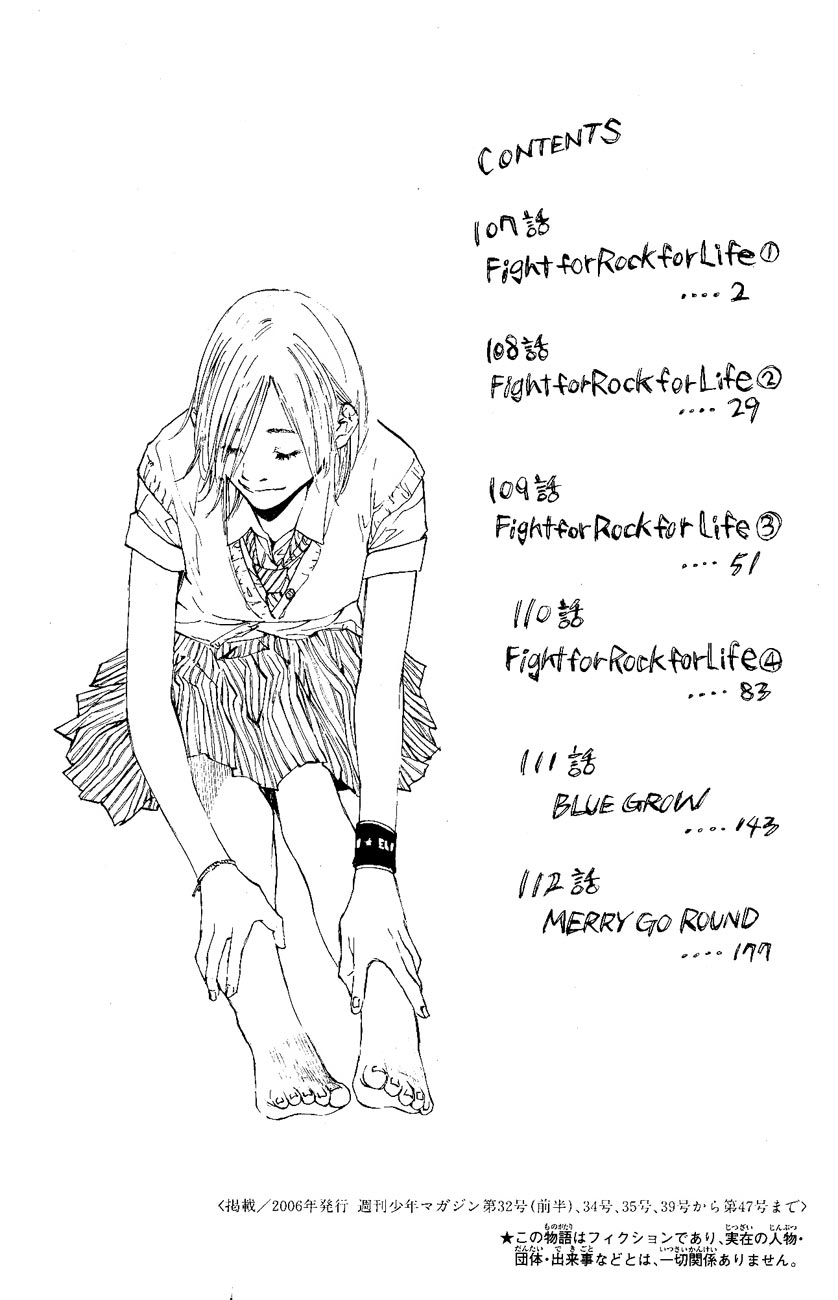 CONTENTS
107話
Fight for Rock for Life①
････2
108話
Fight for Rock for Life②
････29
109話
Fight for Rock for Life③
････51
110話
Fight for Rock for Life④
････83
111話
BLUE GROW
････143
112話
MERRY GO ROUND
････177
★ EL
〈掲載／2006年発行 週刊少年マガジン第32号(前半)、34号、35号、39号から第47号まで〉
★この物語はフィクションであり、実在の人物・
団体・出来事などとは、一切関係ありません。